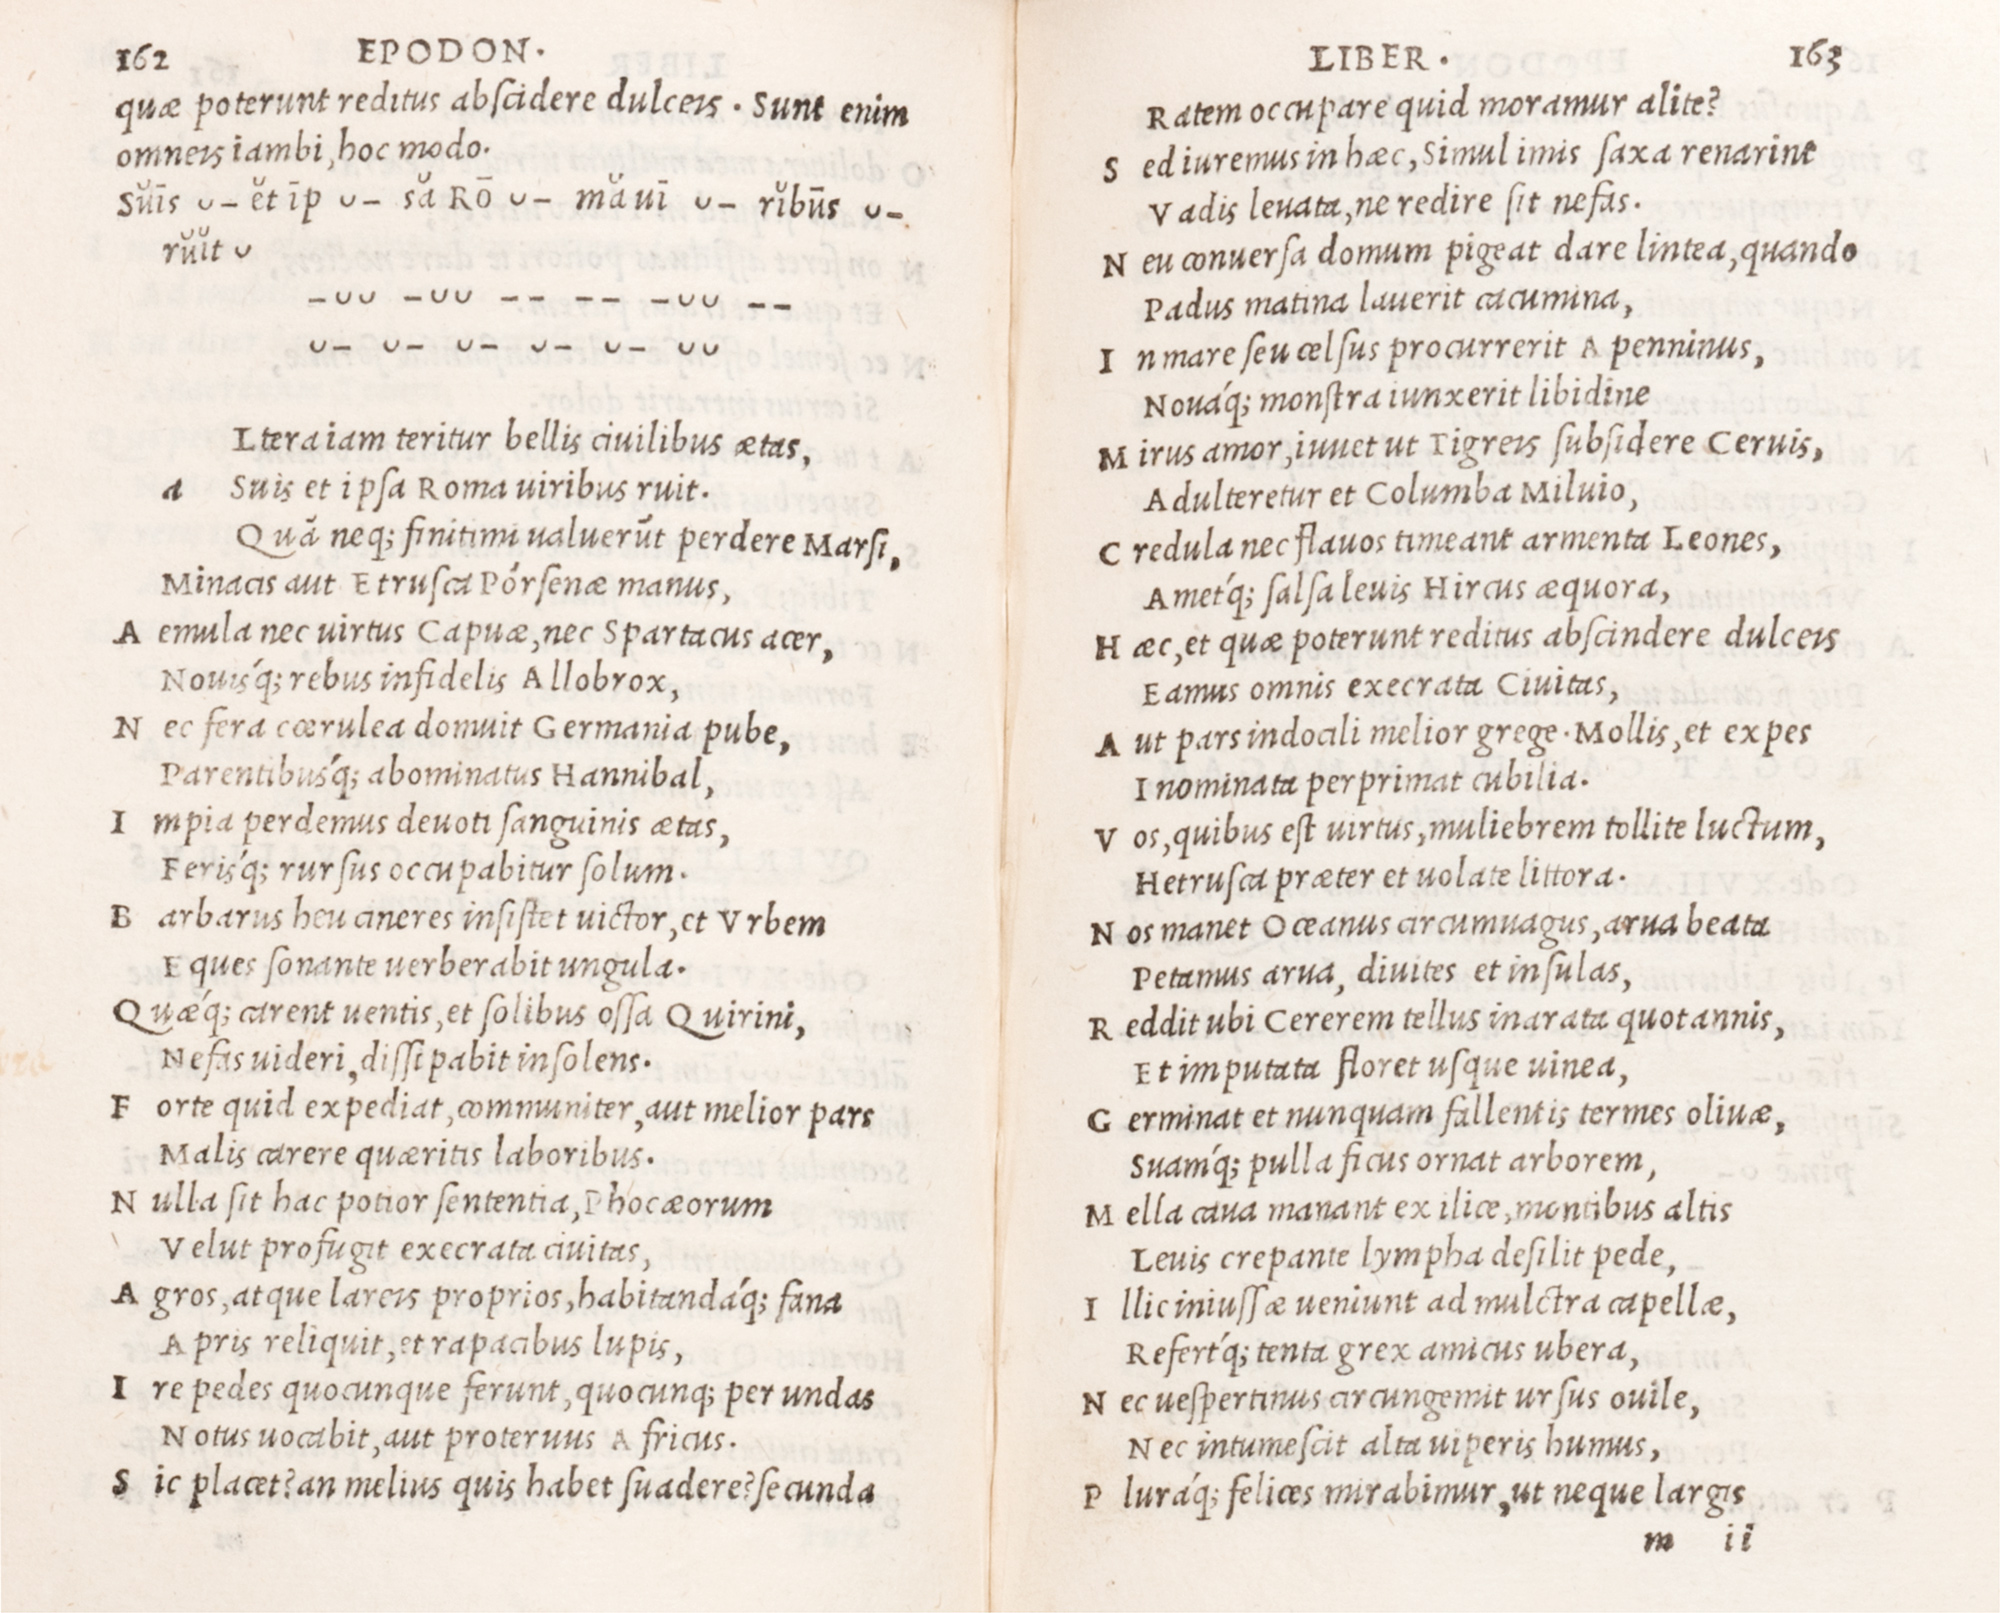 162 EPODON.
quæ poterunt reditus abſcidere dulceis. Sunt enim
omneis iambi, hoc modo.
Sŭīs ᴗ– ĕt īp ᴗ– să Rō ᴗ– mă uī ᴗ– rĭbūs ᴗ–
rŭĭt ᴗ
–ᴗᴗ –ᴗᴗ –– –– –ᴗᴗ ––
ᴗ– ᴗ– ᴗ– ᴗ– ᴗ– ᴗᴗ
Ltera iam teritur bellis ciuilibus ætas,
a Suis et ipſa Roma uiribus ruit.
Quã neq; finitimi ualuerũt perdere Marſi,
Minacis aut Etruſca Pórſenæ manus,
Aemula nec uirtus Capuæ, nec Spartacus acer,
Nouisq́; rebus infidelis Allobrox,
Nec fera cœrulea domuit Germania pube,
Parentibusq́; abominatus Hannibal,
Impia perdemus deuoti ſanguinis ætas,
Ferisq́; rurſus occupabitur ſolum.
Barbarus heu cineres inſiſtet uictor, et Vrbem
Eques ſonante uerberabit ungula.
Quæq́; carent uentis, et ſolibus oſſa Quirini,
Nefas uideri, diſſipabit inſolens.
Forte quid expediat, communiter, aut melior pars
Malis carere quæritis laboribus.
Nulla ſit hac potior ſententia, Phocæorum
Velut profugit execrata ciuitas,
Agros, atque lareis proprios, habitandaq́; fana
Apris reliquit, et rapacibus lupis,
Ire pedes quocunque ferunt, quocunq; per undas
Notus uocabit, aut proteruus Africus.
Sic placet? an melius quis habet ſuadere? ſecunda
LIBER. 163
Ratem occupare quid moramur alite?
Sed iuremus in hæc, Simul imis ſaxa renarint
Vadis leuata, ne redire ſit nefas.
Neu conuerſa domum pigeat dare lintea, quando
Padus matina lauerit cacumina,
In mare ſeu celſus procurrerit Apenninus,
Nouaq́; monſtra iunxerit libidine
Mirus amor, iuuet ut Tigreis ſubſidere Ceruis,
Adulteretur et Columba Miluio,
Credula nec flauos timeant armenta Leones,
Ametq́; ſalſa leuis Hircus æquora,
Hæc, et quæ poterunt reditus abſcindere dulceis
Eamus omnis execrata Ciuitas,
Aut pars indocili melior grege. Mollis, et expes
Inominata perprimat cubilia.
Vos, quibus eſt uirtus, muliebrem tollite luctum,
Hetruſca præter et uolate littora.
Nos manet Oceanus circumuagus, arua beata
Petamus arua, diuites et inſulas,
Reddit ubi Cererem tellus inarata quotannis,
Et imputata floret uſque uinea,
Germinat et nunquam fallentis termes oliuæ,
Suamq́; pulla ficus ornat arborem,
Mella caua manant ex ilice, montibus altis
Leuis crepante lympha deſilit pede,
Illic iniuſſæ ueniunt ad mulctra capellæ,
Refertq́; tenta grex amicus ubera,
Nec ueſpertinus circungemit urſus ouile,
Nec intumeſcit alta uiperis humus,
Pluraq́; felices mirabimur, ut neque largis
m ii